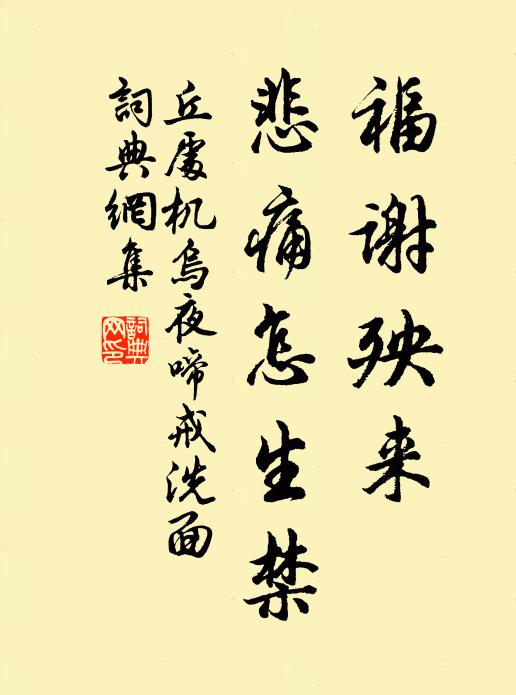 福谢殃来
悲痛怎生禁
丘處机烏夜啼戒洗面
詞典網集
詞典
网印